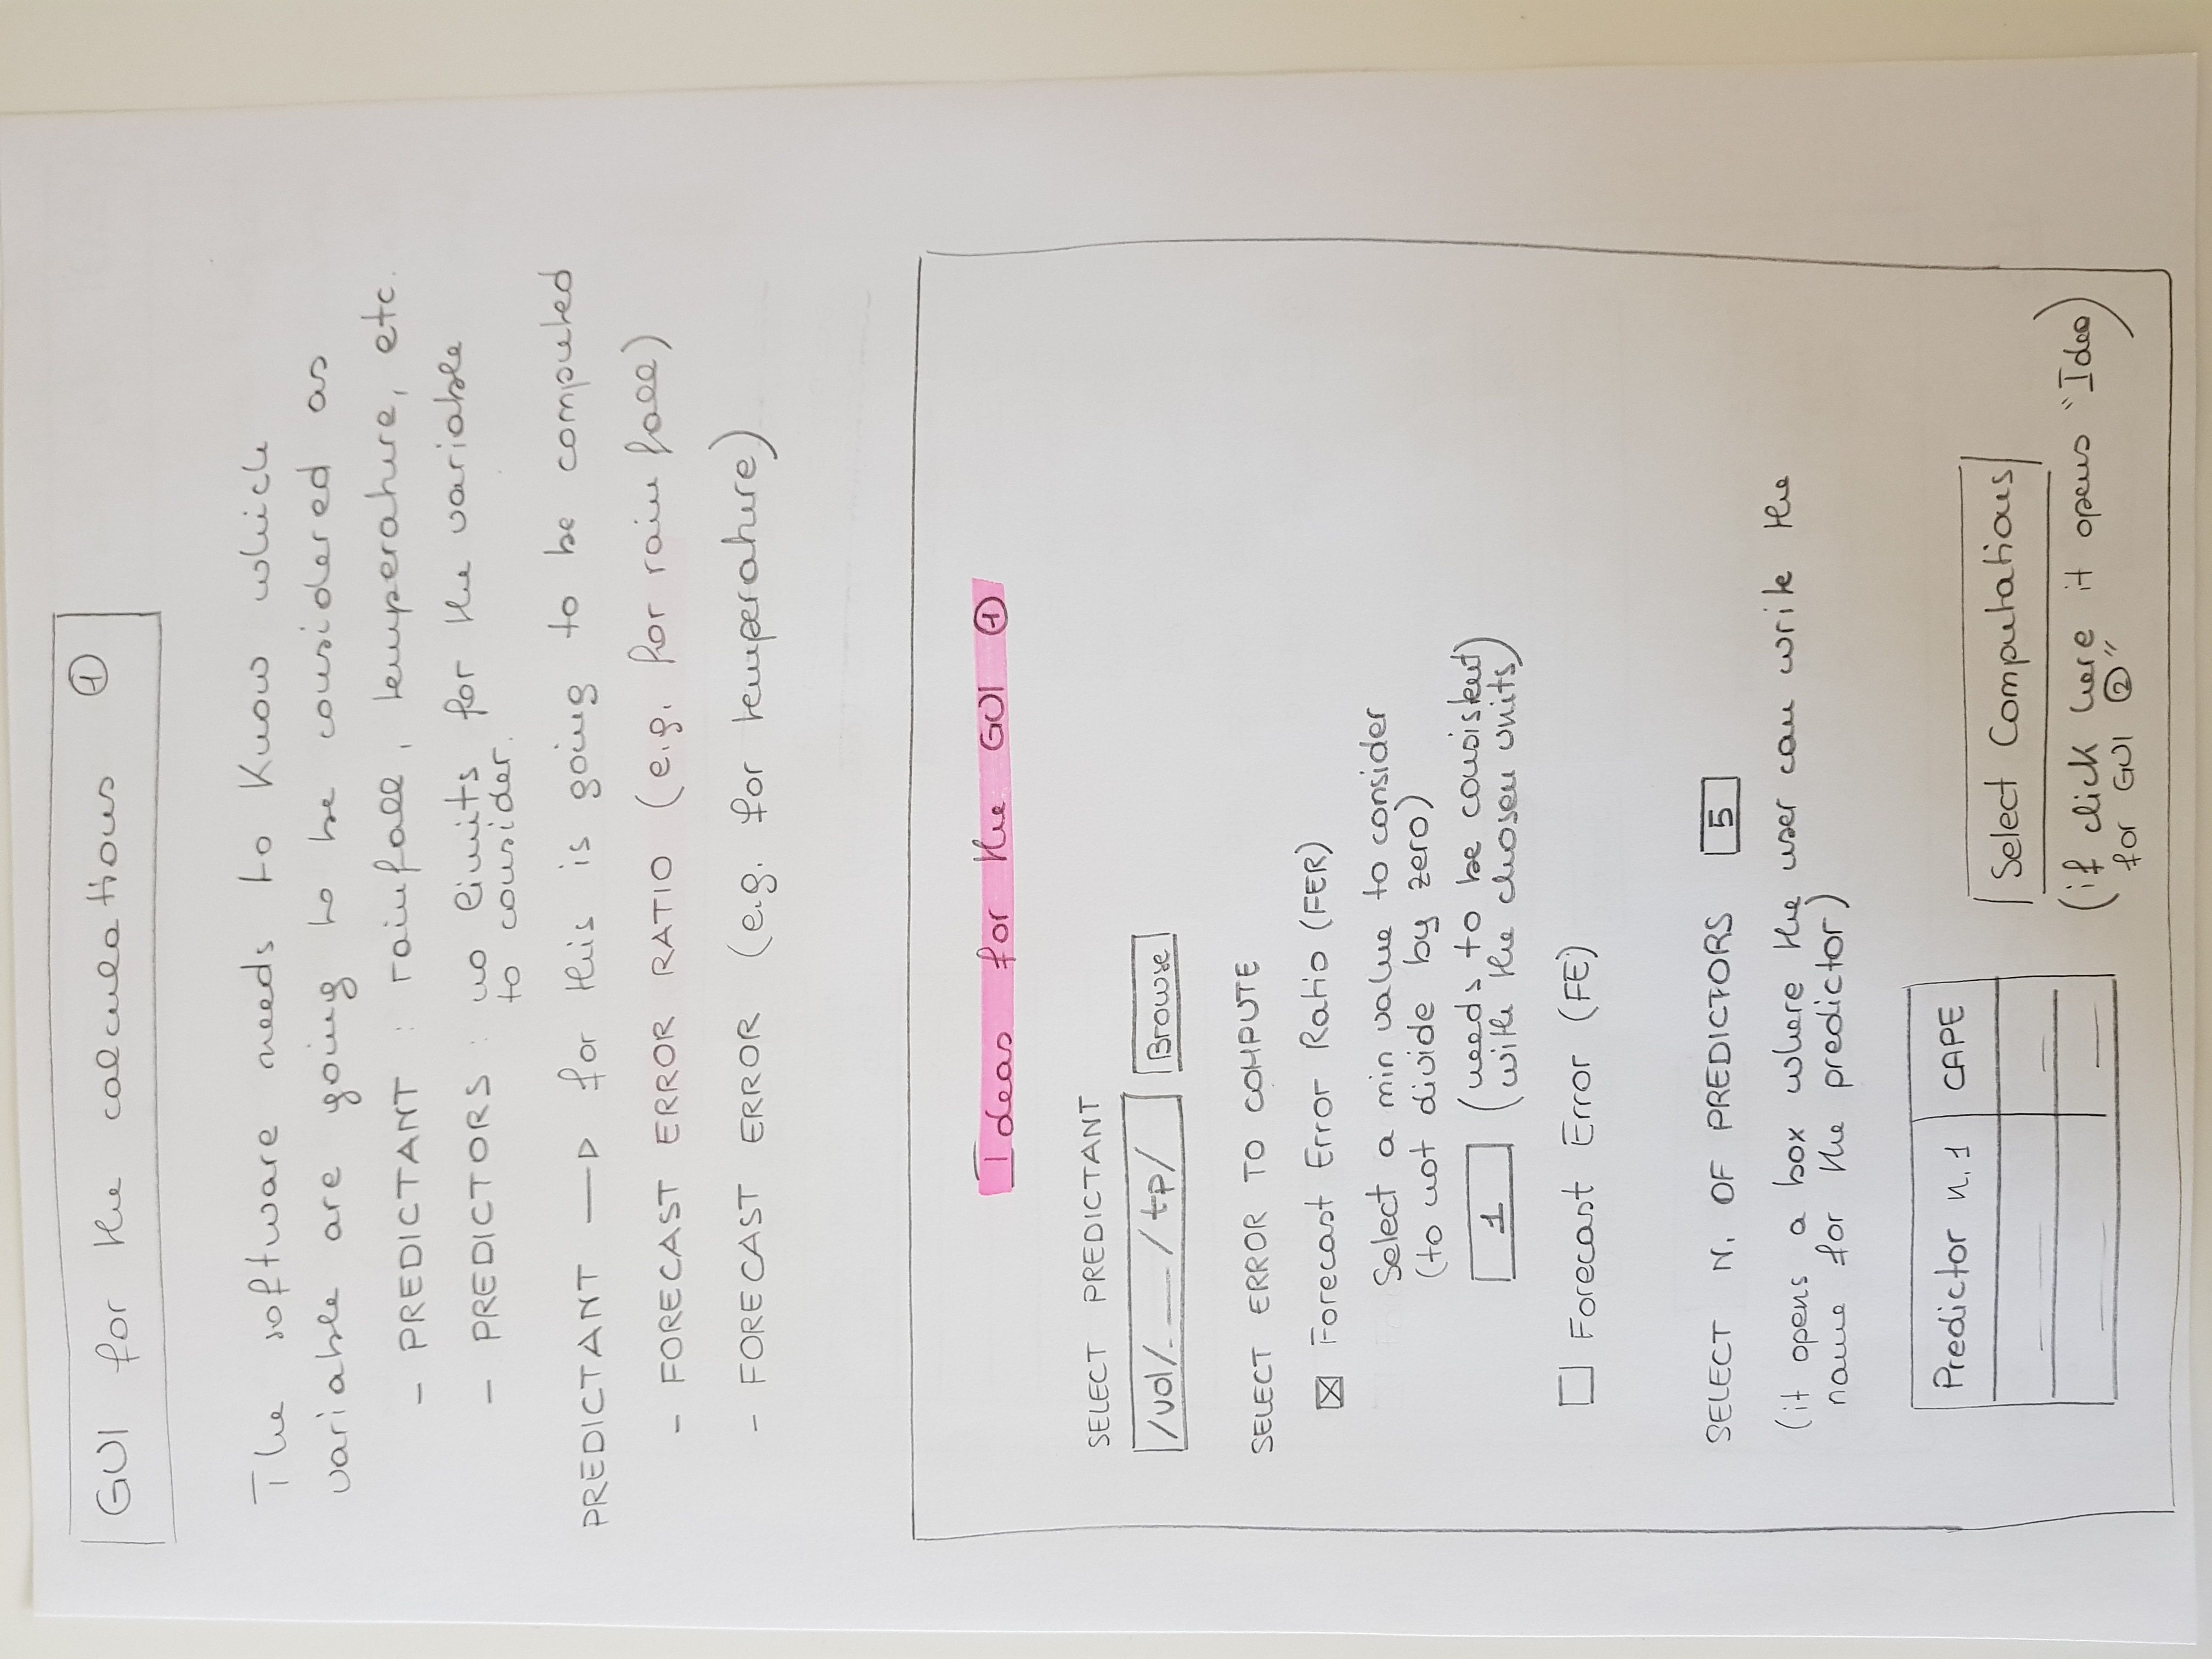 GUI for the calculations ①
The software needs to know which
variable are going to be considered as
- PREDICTANT : rainfall, temperature, etc.
- PREDICTORS : no limits for the variable
to consider.
PREDICTANT —▷ for this is going to be computed
- FORECAST ERROR RATIO (e.g. for rainfall)
- FORECAST ERROR (e.g. for temperature)
Ideas for the GUI ①
SELECT PREDICTANT
/vol/. __ / tp/ Browse
SELECT ERROR TO COMPUTE
☒ Forecast Error Ratio (FER)
Select a min value to consider
(to not divide by zero)
1 (needs to be consistent
with the chosen units)
☐ Forecast Error (FE)
SELECT N. OF PREDICTORS 5
(it opens a box where the user can write the
name for the predictor)
Predictor n. 1 CAPE
Select Computations
(if click here it opens "Idea
for GUI ②")